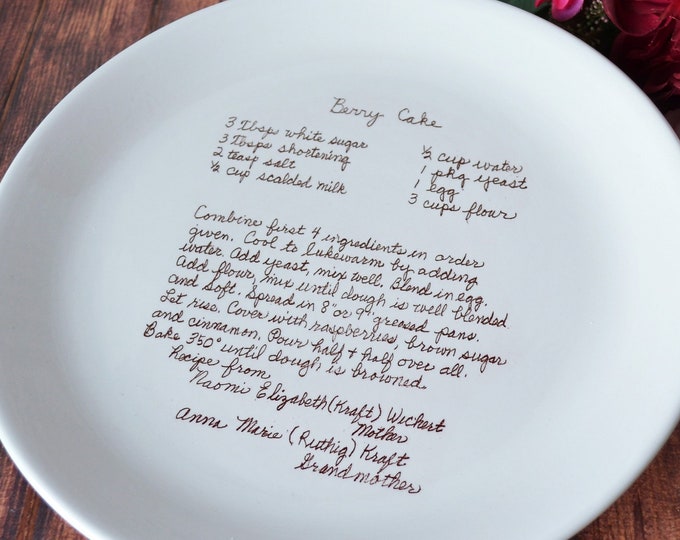 Berry Cake
3 Tbsps white sugar
3 Tbsps shortening
2 teasp salt
½ cup scalded milk
½ cup water
1 pkg yeast
1 egg
3 cups flour
Combine first 4 ingredients in order
given. Cool to lukewarm by adding
water. Add yeast, mix well. Blend in egg.
Add flour, mix until dough is well blended
and soft. Spread in 8" or 9" greased pans.
Let rise. Cover with raspberries, brown sugar
and cinnamon. Pour half + half over all.
Bake 350° until dough is browned.
Recipe from
Naomi Elizabeth (Kraft) Wickert
Mother
Anna Marie (Ruthig) Kraft
Grandmother